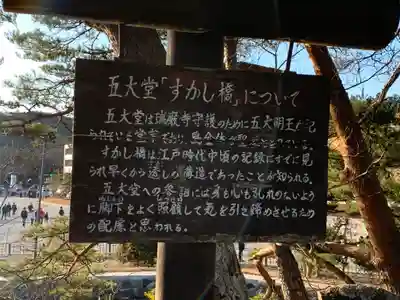 五大堂「すかし橋」について
五大堂は瑞巌寺守護のために五大明王が祀
られている堂宇で
すかし橋は江戸時代中頃の記録にすでに見
られ早くから透しの構造であったことが知られる。
五大堂への参詣には身も心も乱れのないよう
に脚下をよく照顧して気を引き締めさせるため
の配慮と思われる。